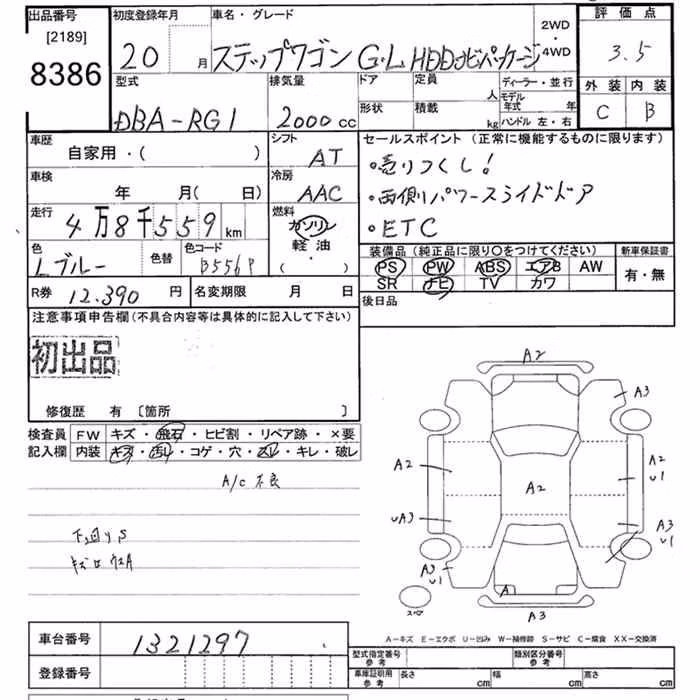 出品番号 初度登録年月 車名・グレード 2WD・4WD 評価点
[2189]
8386
20 月 ステップワゴン G・L HDDナビパッケージ
3.5
外装 内装
C B
型式 排気量 ドア 定員 人 ディーラー・並行
モデル年式 年
形状 積載 kg ハンドル 左・右
DBA-RG1 2000 cc
車歴 シフト セールスポイント (正常に機能するものに限ります)
自家用・( ) AT
・売りつくし!
車検 冷房
年 月( 日) AAC
・両側パワースライドドア
走行 燃料
4万8千559 km ガソリン
・ETC
軽油
( )
色 色替 色コード
Lブルー B556P
装備品 (純正品に限り○をつけてください) 新車保証書
PS PW ABS エアB AW 有・無
SR ナビ TV カワ
R券 12,390 円 名変期限 月 日
後日品
注意事項申告欄(不具合内容等は具体的に記入して下さい)
初出品
修復歴 有 〔箇所 〕
検査員 FW キズ・飛石・ヒビ割・リペア跡・×要
記入欄 内装 キズ・汚レ・コゲ・穴・スレ・キレ・破レ
A/C 不良
下回りS
A2
A3
A2
A2
A2
U1
UA3
A3
U1
A3
U1
A
A3
スペア
A-キズ E-エクボ U-凹み W-補修跡 S-サビ C-腐食 XX-交換済
車台番号 1321297
登録番号
型式指定番号 参考 類別区分番号 参考
車庫証明用 参考 長さ cm 幅 cm 高さ cm